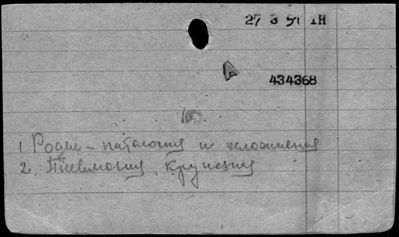 27 3 51 IH
434368
1. Роды - патология и осложнения
2. Пневмония, крупозная